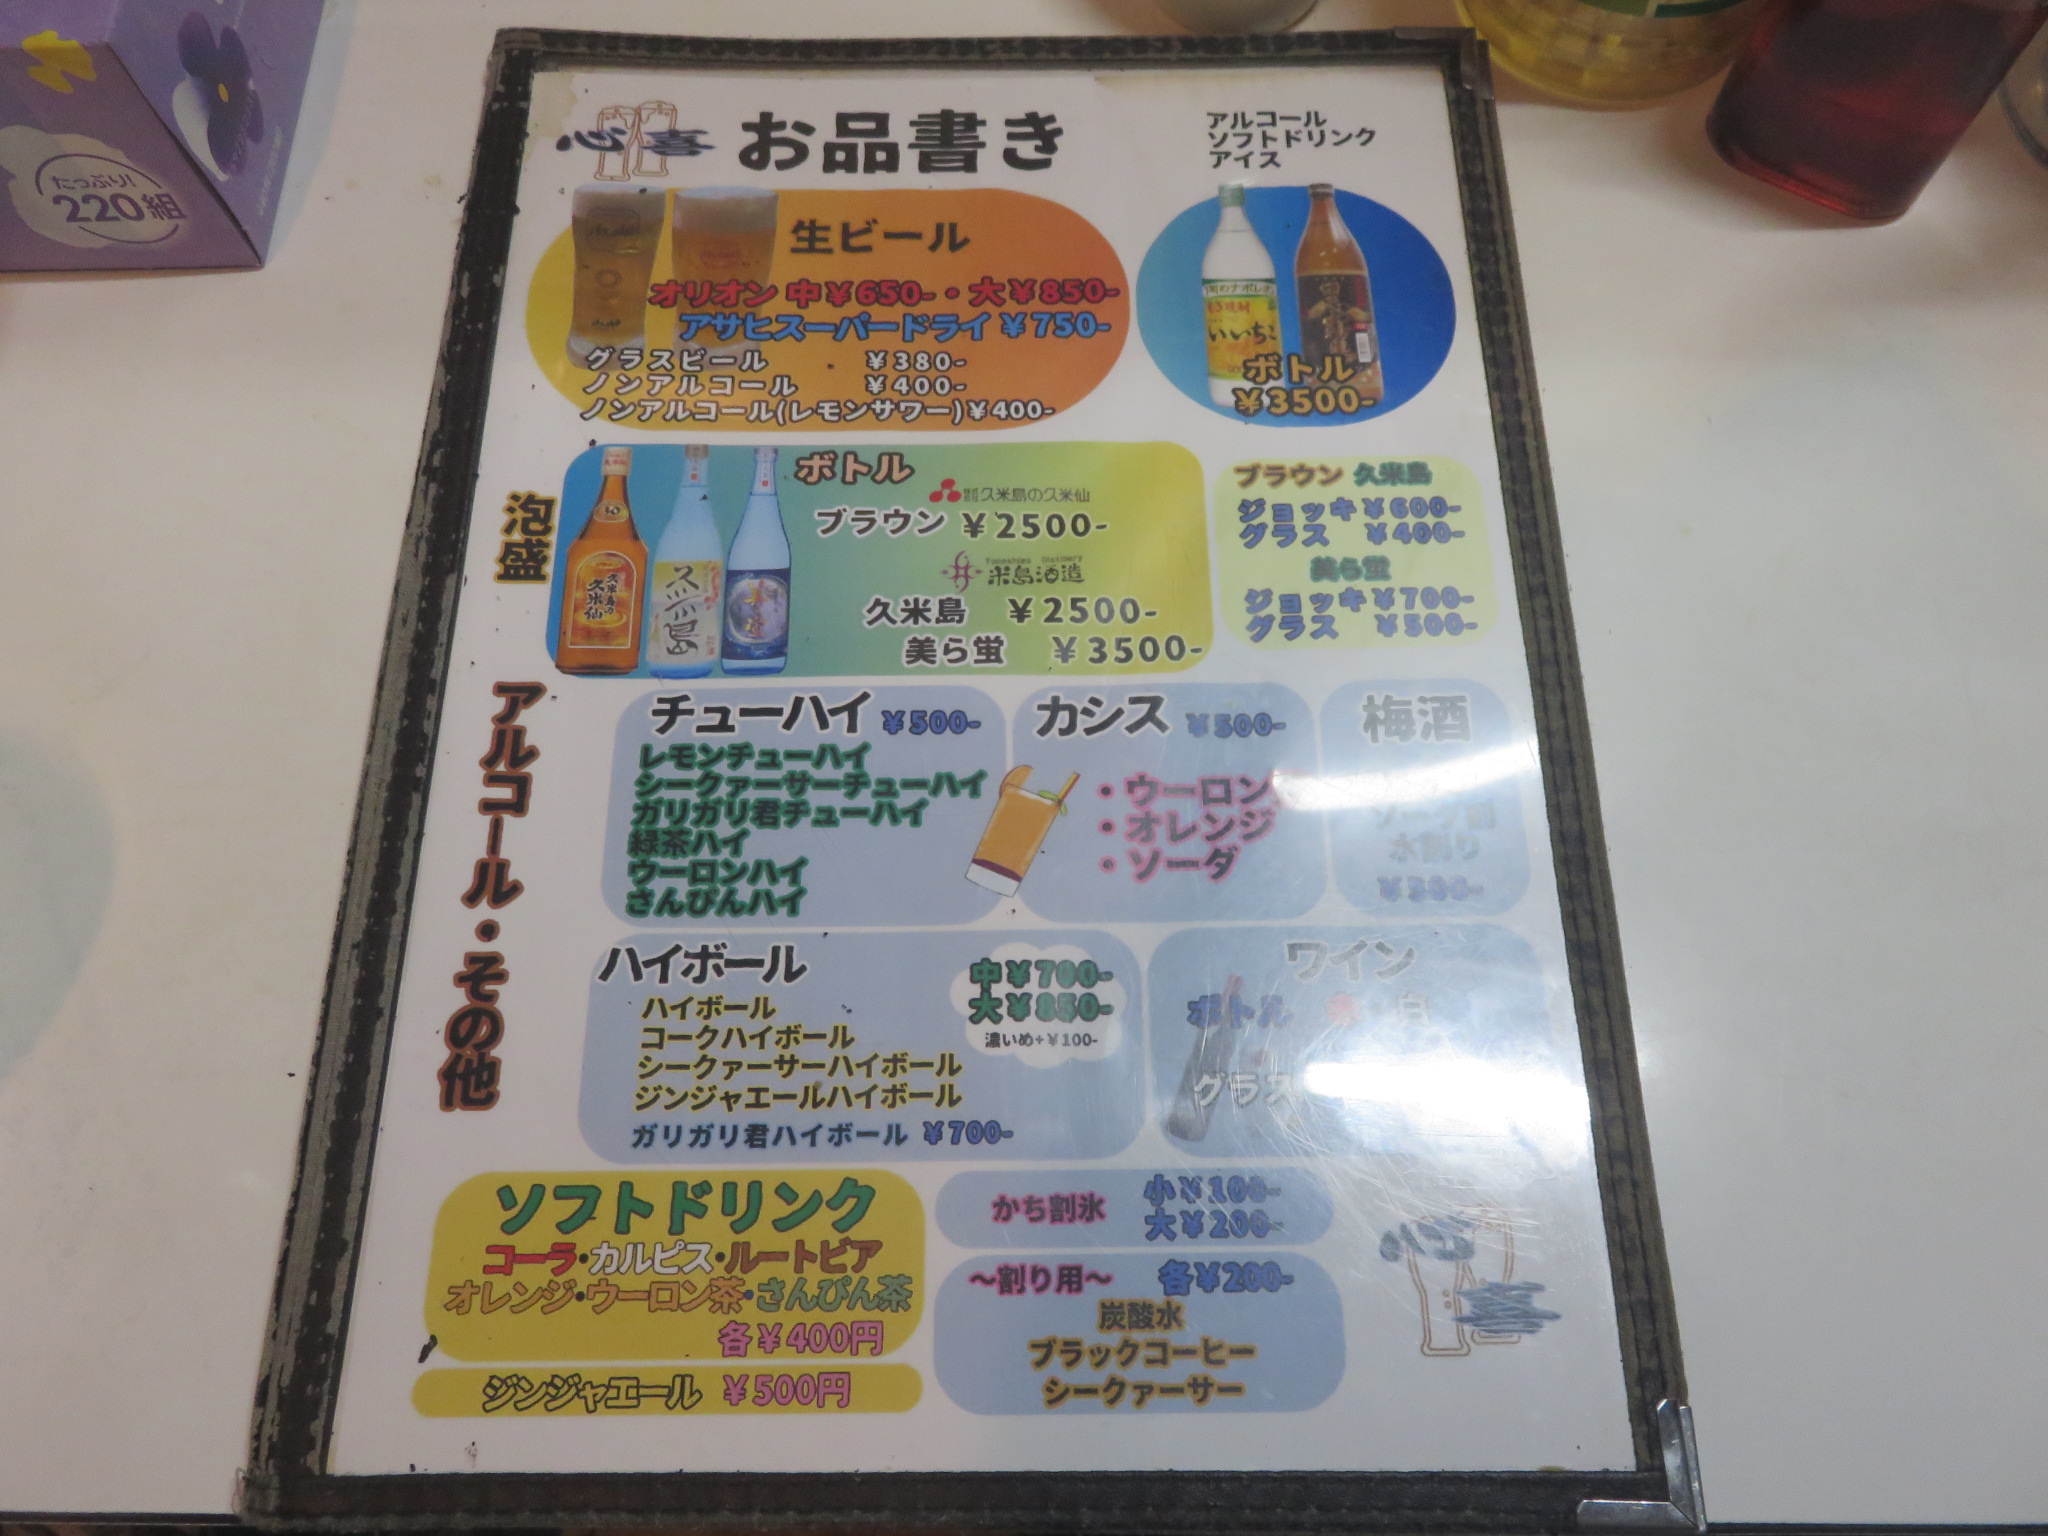 たっぷり!
220組
心喜
お品書き
アルコール
ソフトドリンク
アイス
生ビール
オリオン 中¥650-・大¥850-
アサヒスーパードライ ¥750-
グラスビール ¥380-
ノンアルコール ¥400-
ノンアルコール(レモンサワー)¥400-
いいちこ
ボトル
¥3500-
泡盛
ボトル
久米島の久米仙
ブラウン ¥2500-
米島酒造
久米島 ¥2500-
美ら蛍 ¥3500-
久米島の
久米仙
久米島
ブラウン 久米島
ジョッキ¥600-
グラス ¥400-
美ら蛍
ジョッキ¥700-
グラス ¥500-
アルコール・その他
チューハイ ¥500-
レモンチューハイ
シークァーサーチューハイ
ガリガリ君チューハイ
緑茶ハイ
ウーロンハイ
さんぴんハイ
カシス ¥500-
・ウーロン
・オレンジ
・ソーダ
梅酒
ソーダ割
水割り
¥500-
ハイボール
中¥700-
大¥850-
濃いめ+¥100-
ハイボール
コークハイボール
シークァーサーハイボール
ジンジャエールハイボール
ガリガリ君ハイボール ¥700-
ワイン
ボトル 赤・白
グラス
ソフトドリンク
コーラ・カルピス・ルートビア
オレンジ・ウーロン茶・さんぴん茶
各¥400円
ジンジャエール ¥500円
かち割氷 小¥100-
大¥200-
~割り用~ 各¥200-
炭酸水
ブラックコーヒー
シークァーサー
心喜